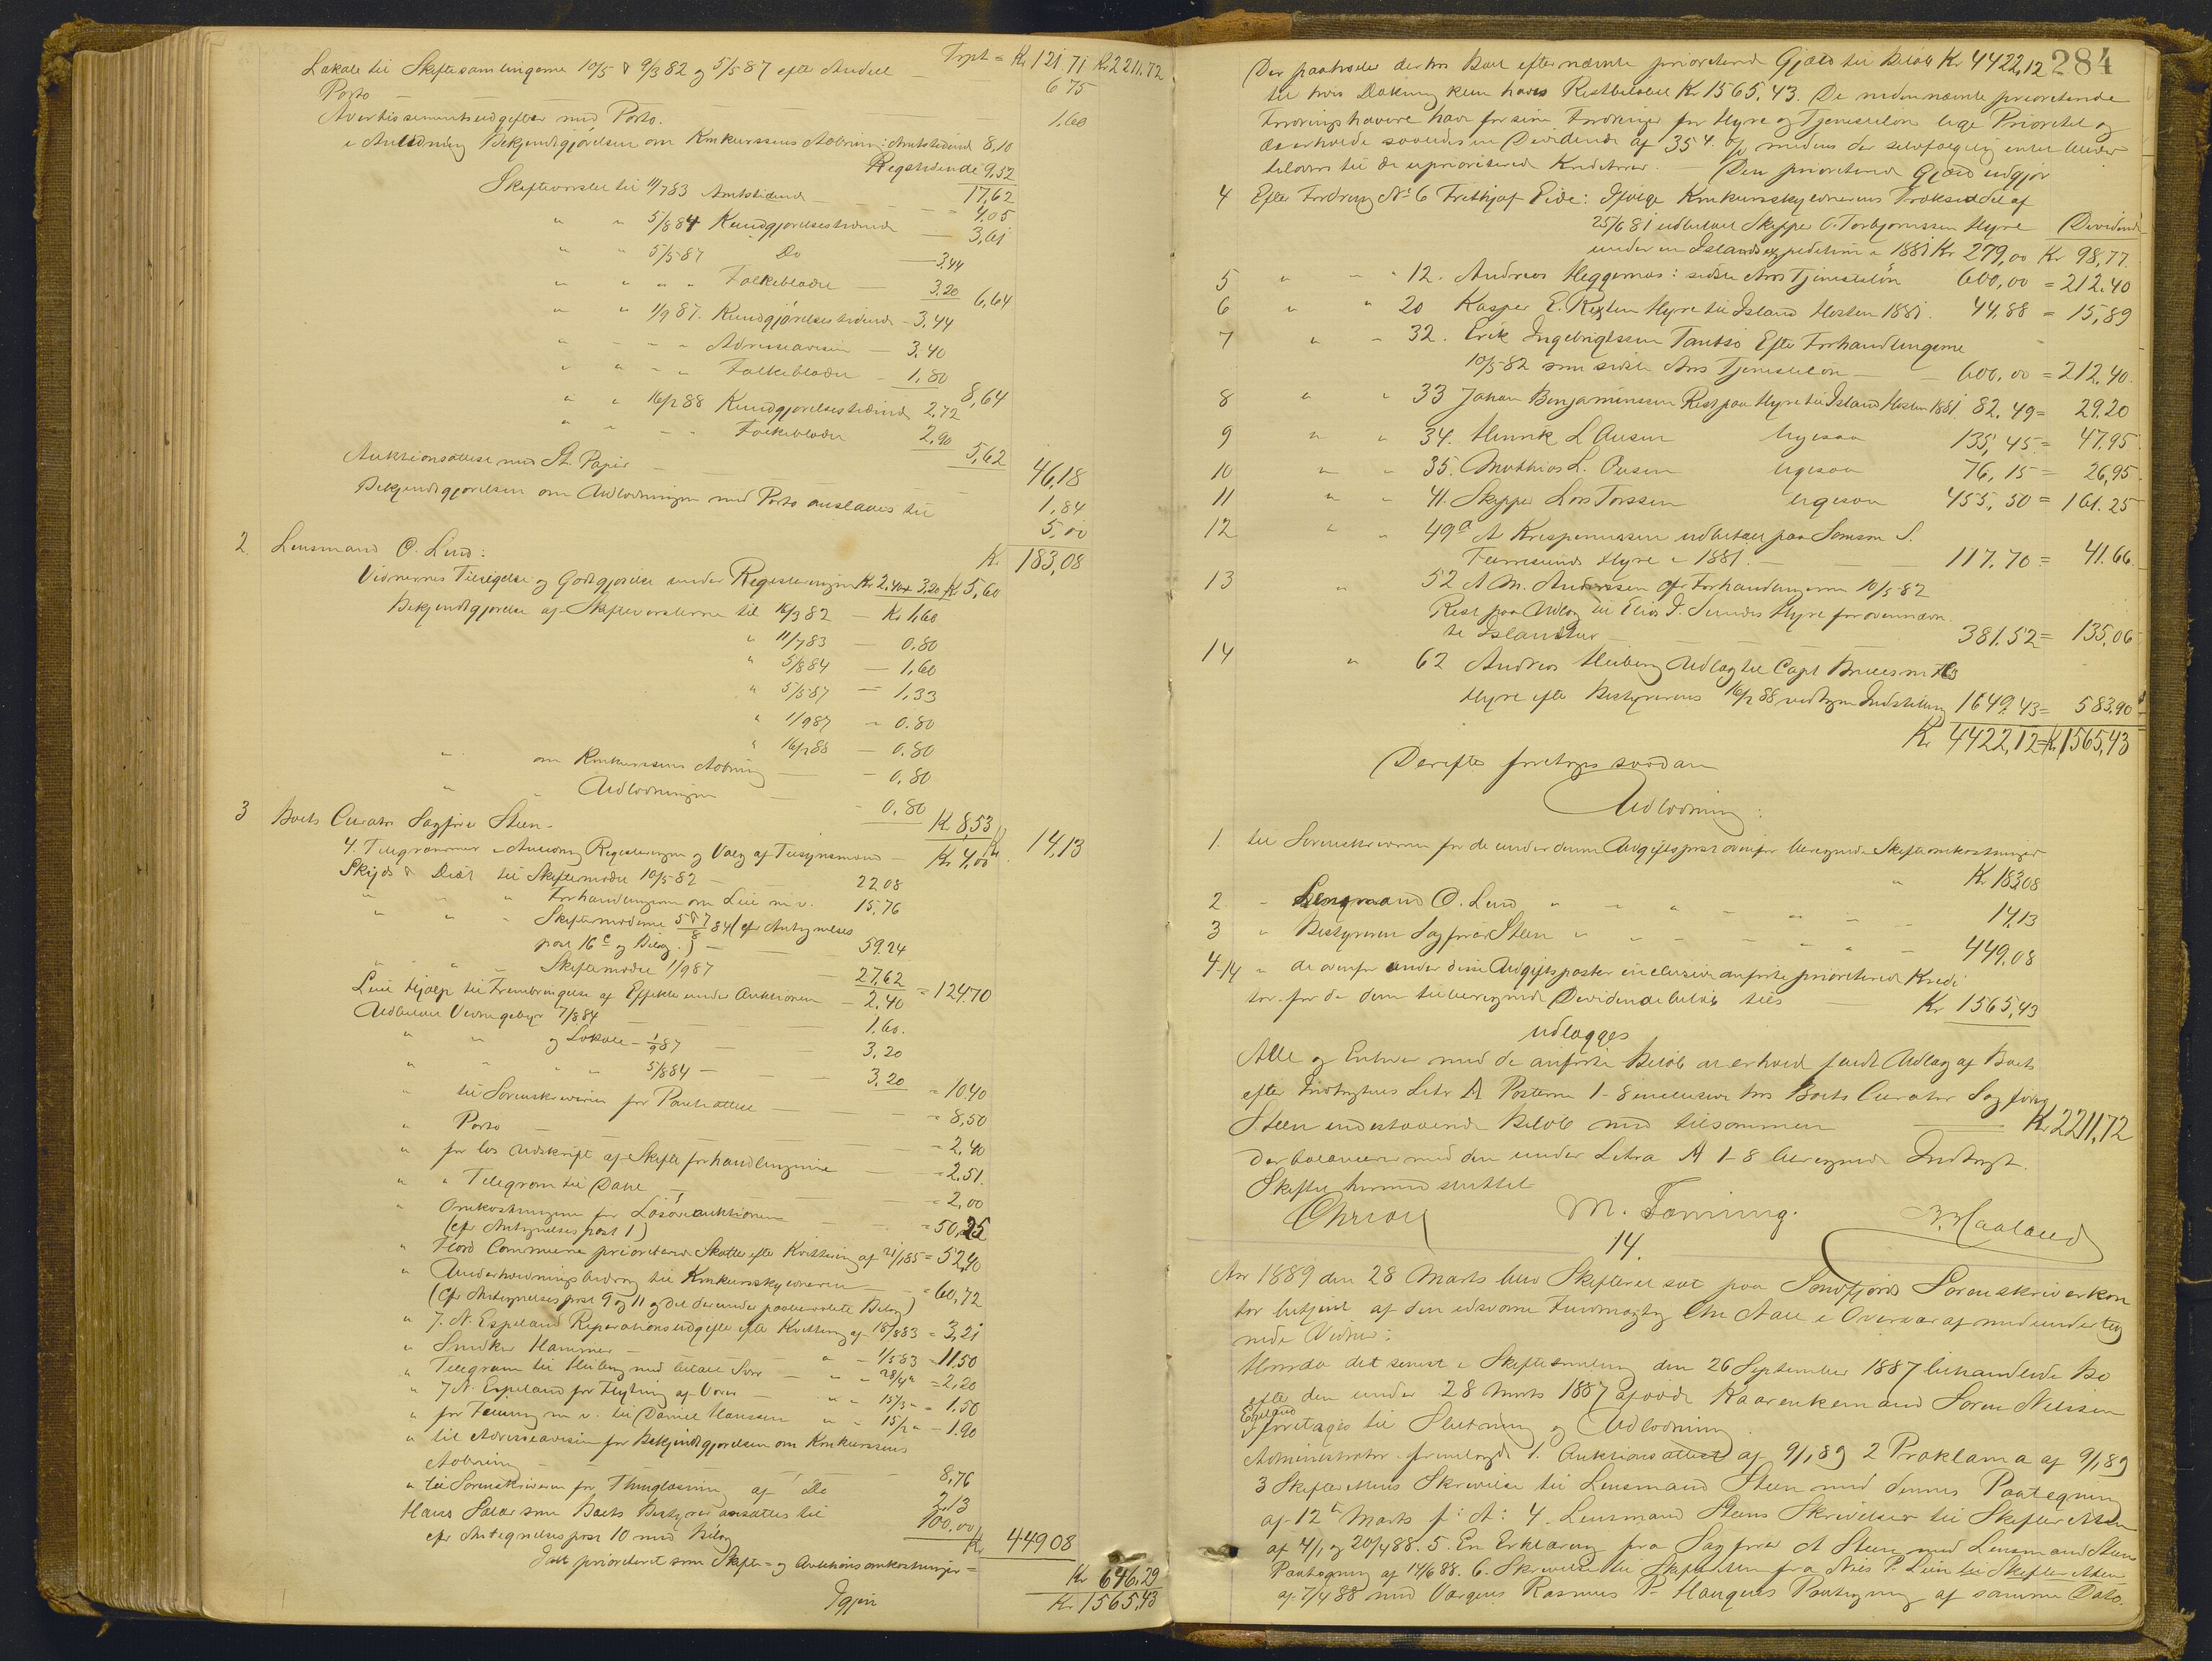 Trpt = Kr 121,71 Kr 2211.72
Lokale til Skiftesamlingerne 10/5 & 9/3 82 og 5/5 87 efter Andel —
Porto — — — 6 75
Avertissementsudgifter med Porto. 1.60
i Anledning Bekjendtgjørelsen om Konkurssens Aabning: Amtstidende 8,10
Rigstidende 9,52
17,62
Skiftevarslet til 11/7 83 Amtstidende — 4,05
" " 5/8 84 Kundgjørelsestidende — 3,61
" " 5/5 87 Do — 3,44
" " " " Folkebladet — 3,20 6,64
" " 1/9 87. Kundgjørelsestidende — 3,44
" " " " Adresseavisen — 3,40
" " " " Folkebladet — 1,80 8,64
" " 16/2 88 Kundgjørelsestidende 2,72
" " " " Folkebladet 2,90 5,62
46,18
Auktionsattest med St. Papir — 1,84
Bekjendtgjørelsen om Udlodningen med Porto anslaaes til 5,00
Kr 183,08
2. Lensmand O. Lund:
Vidnernes Tilsigelse og Godtgjørelse under Registreringen Kr 2,40 + 3,20 Kr 5,60
Bekjendtgjørelse af Skiftevarslerne til 16/3 82 — Kr 1,60
" 11/7 83 — 0.80
" 5/8 84 — 1,60
" 5/5 87 — 1,33
" 1/9 87 — 0.80
" 16/2 88 — 0.80
" om Konkurssens Aabning — 0,80
" " Udlodningen — 0,80 Kr 8,53 Kr 14,13
3 Boets Curator Sagfører Steen —
4 Telegrammer i Anledning Registreringen og Valg af Tilsynsmænd — Kr 4,00
Skyds & Diæt til Skiftemødet 10/5 82 — 22 08
" " " Forhandlingerne om Leie m. v. 15,76
" " " Skiftemøderne 5 & 7/8 84 (cfr Antegnelses
post 16 c og Bilag.) — 59.24
" " " Skiftemødet 1/9 87 — 27,62 = 124.70
Leiet Hjælp til Frembringelse af Effekter under Auktionen — 2,40
Udbetalt Vidnegebyr 7/8 84 — 1,60.
" " og Lokale — 1/9 87 — 3,20
" " " " 5/8 84 — 3,20 = 10.40
" til Sorenskriveren for Panteattest — = 8,50
" Porto — = 2,40
" for løs Udskrift af Skifteforhandlingerne — = 2,51.
" " Telegram til Dahl — = 2,00
" Omkostningerne for Løsøreauktionen — = 50,25
(cfr Antegnelses post 1)
" Florø Commune prioriterede Skatter efter Kvittering af 21/1 85 = 52,40
" Underholdningsbidrag til Konkursskyldneren — = 60,72
(Cfr Antegnelses post 9 og 11 og det derunder paaberaabte Bilag)
" J. N. Espeland Reparationsudgifter efter Kvittering af 18/8 83 = 3,21
" Smeden Hammer — " — 1/5 83 = 11.50
" Telegram til Heiberg med betalt Svar — " — 28/4 " = 2,20
" J N. Espeland for Flytning af Varer — " — 15/3 " = 1,50
" for m. v. til Daniel Hanssen " " 15/2 " — 1.90
" til Adresseavisen for Bekjendtgjørelsen om Konkurssens
Aabning — 8,76
" til Sorenskriveren for Thinglæsning af Do 2,13
Hans Salær som Boets Bestyrer ansættes til 100,00
cfr Antegnelsespost 10 med Bilag Kr 449 08
Ialt prioriteret som Skifte- og Auktionsomkostninger = Kr 646,29
Igjen Kr. 1565,43
284
Der paahviler derhos Boet efternævnte prioriterede Gjæld til Beløb Kr 4422,12
til hvis Dækning kun haves Restbeløbet Kr 1565,43. De nedennævnte prioriterede
Fordringshavere have for sine Fordringer for Hyre og Tjenesteløn lige Prioritet og
de erholde saaledes en Dividende af 35,4 % medens der selvfølgelig intet bliver
tilovers til de uprioriterede Kreditorer. — Den prioriterede Gjæld udgjør
4 Efter Fordring No 6 Frithjof Eide: Ifølge Konkursskyldnerens Træksedel af
25/6 81 udbetalt Skipper O. Torbjørnssen Hyre Dividende
under en Islandsexpedition i 1881 Kr 279,00 Kr 98,77.
5 " — " 12. Andreas Heggernæs: sidste Aars Tjenesteløn 600,00 = 212.40
6 " " 20 Kasper E. Hyre til Island Høsten 1881. 44.88 = 15,89
7 " " 32. Erik Ingebrigtssen Tansø Efter Forhandlingerne
10/5 82 som sidste Aars Tjenesteløn — 600,00 = 212,40.
8 " " 33 Johan Benjaminssen Rest paa Hyre til Island Høsten 1881. 82,49 = 29.20
9 " " 34. Henrik L Ausen ligesaa 135,45 = 47.95
10 " " 35. Matthias L. Ausen ligesaa 76,15 = 26,95
11 " " 41. Skipper Lars Torssen ligesaa 455,50 = 161.25
12 " " 49a A Krispinussen udbetalt paa Samson S.
Hyre i 1881. — 117.70 = 41.66.
13 " 52 A M. Anderssen cfr Forhandlingerne 10/5 82
Rest paa Udlæg til Elias J. Sundes Hyre for ovennævn
te Islandstur — 381.52 = 135,06
14 " 62 Andreas Heiberg Udlæg til Capt
Hyre efter Bestyrerens 16/2 88 vedtagne Indstilling 1649,43 = 583,90
Kr 4422,12 = Kr 1565,43
Derefter foretoges saadan
Udlodning:
1. til Sorenskriveren for de under denne Udgiftspost ovenfor beregnede Skifteomkostninger
" Kr 183,08
2. — Lensmand O. Lund " " " " " — 14,13
3 " Bestyreren Sagfører Steen " " " " " — 449,08
4-14 " de ovenfor under disse Udgiftsposter inclusive anførte prioriterede Kredi
tor. for de dem tilberegnede Dividendebeløb tils — Kr 1565,43
udlægges
Alle og Enhver med de anførte Beløb at erholde fuldt Udlæg af Boets
efter Indtægtens Litr A Posterne 1-8 inclusive hos Boets Curator Sagfører
Steen indestaaende Beløb med tilsammen — Kr 2211,72
der balancerer med den under Litra A 1-8 beregnede Indtægt.
Skiftet hermed sluttet
Chr Aall M. Forning. N. Haaland
14.
Aar 1889 den 28 Marts blev Skifteret sat paa Søndfjords Sorenskriverkon
tor betjent af den edsvorne Fuldmægtig Chr Aall i Overvær af medunderteg
nede Vidner:
Hvorda det senest i Skiftesamling den 26 September 1887 behandlede Bo
efter den under 28 Marts 1887 afdøde Kaarenkemand Søren Nilssen
Espeland
foretages til Slutning og Udlodning.
Administrator fremlagde 1. Auktionsattest af 9/1 89 2 Proklama af 9/1 89
3 Skifterettens Skrivelse til Lensmand Steen med dennes Paategning
af 12te Marts f: A: 4. Lensmand Steens Skrivelser til Skifteretten
af 4/1 og 20/4 88. 5. En Erklæring fra Sagfører A Steen med Lensmand Steens
Paategning af 14/6 88. 6. Skrivelse til Skifteretten fra Nils P. Lien til Skifteretten
af 7/4 88 med Værgens Rasmus P. Haugens Paategning af samme Dato.